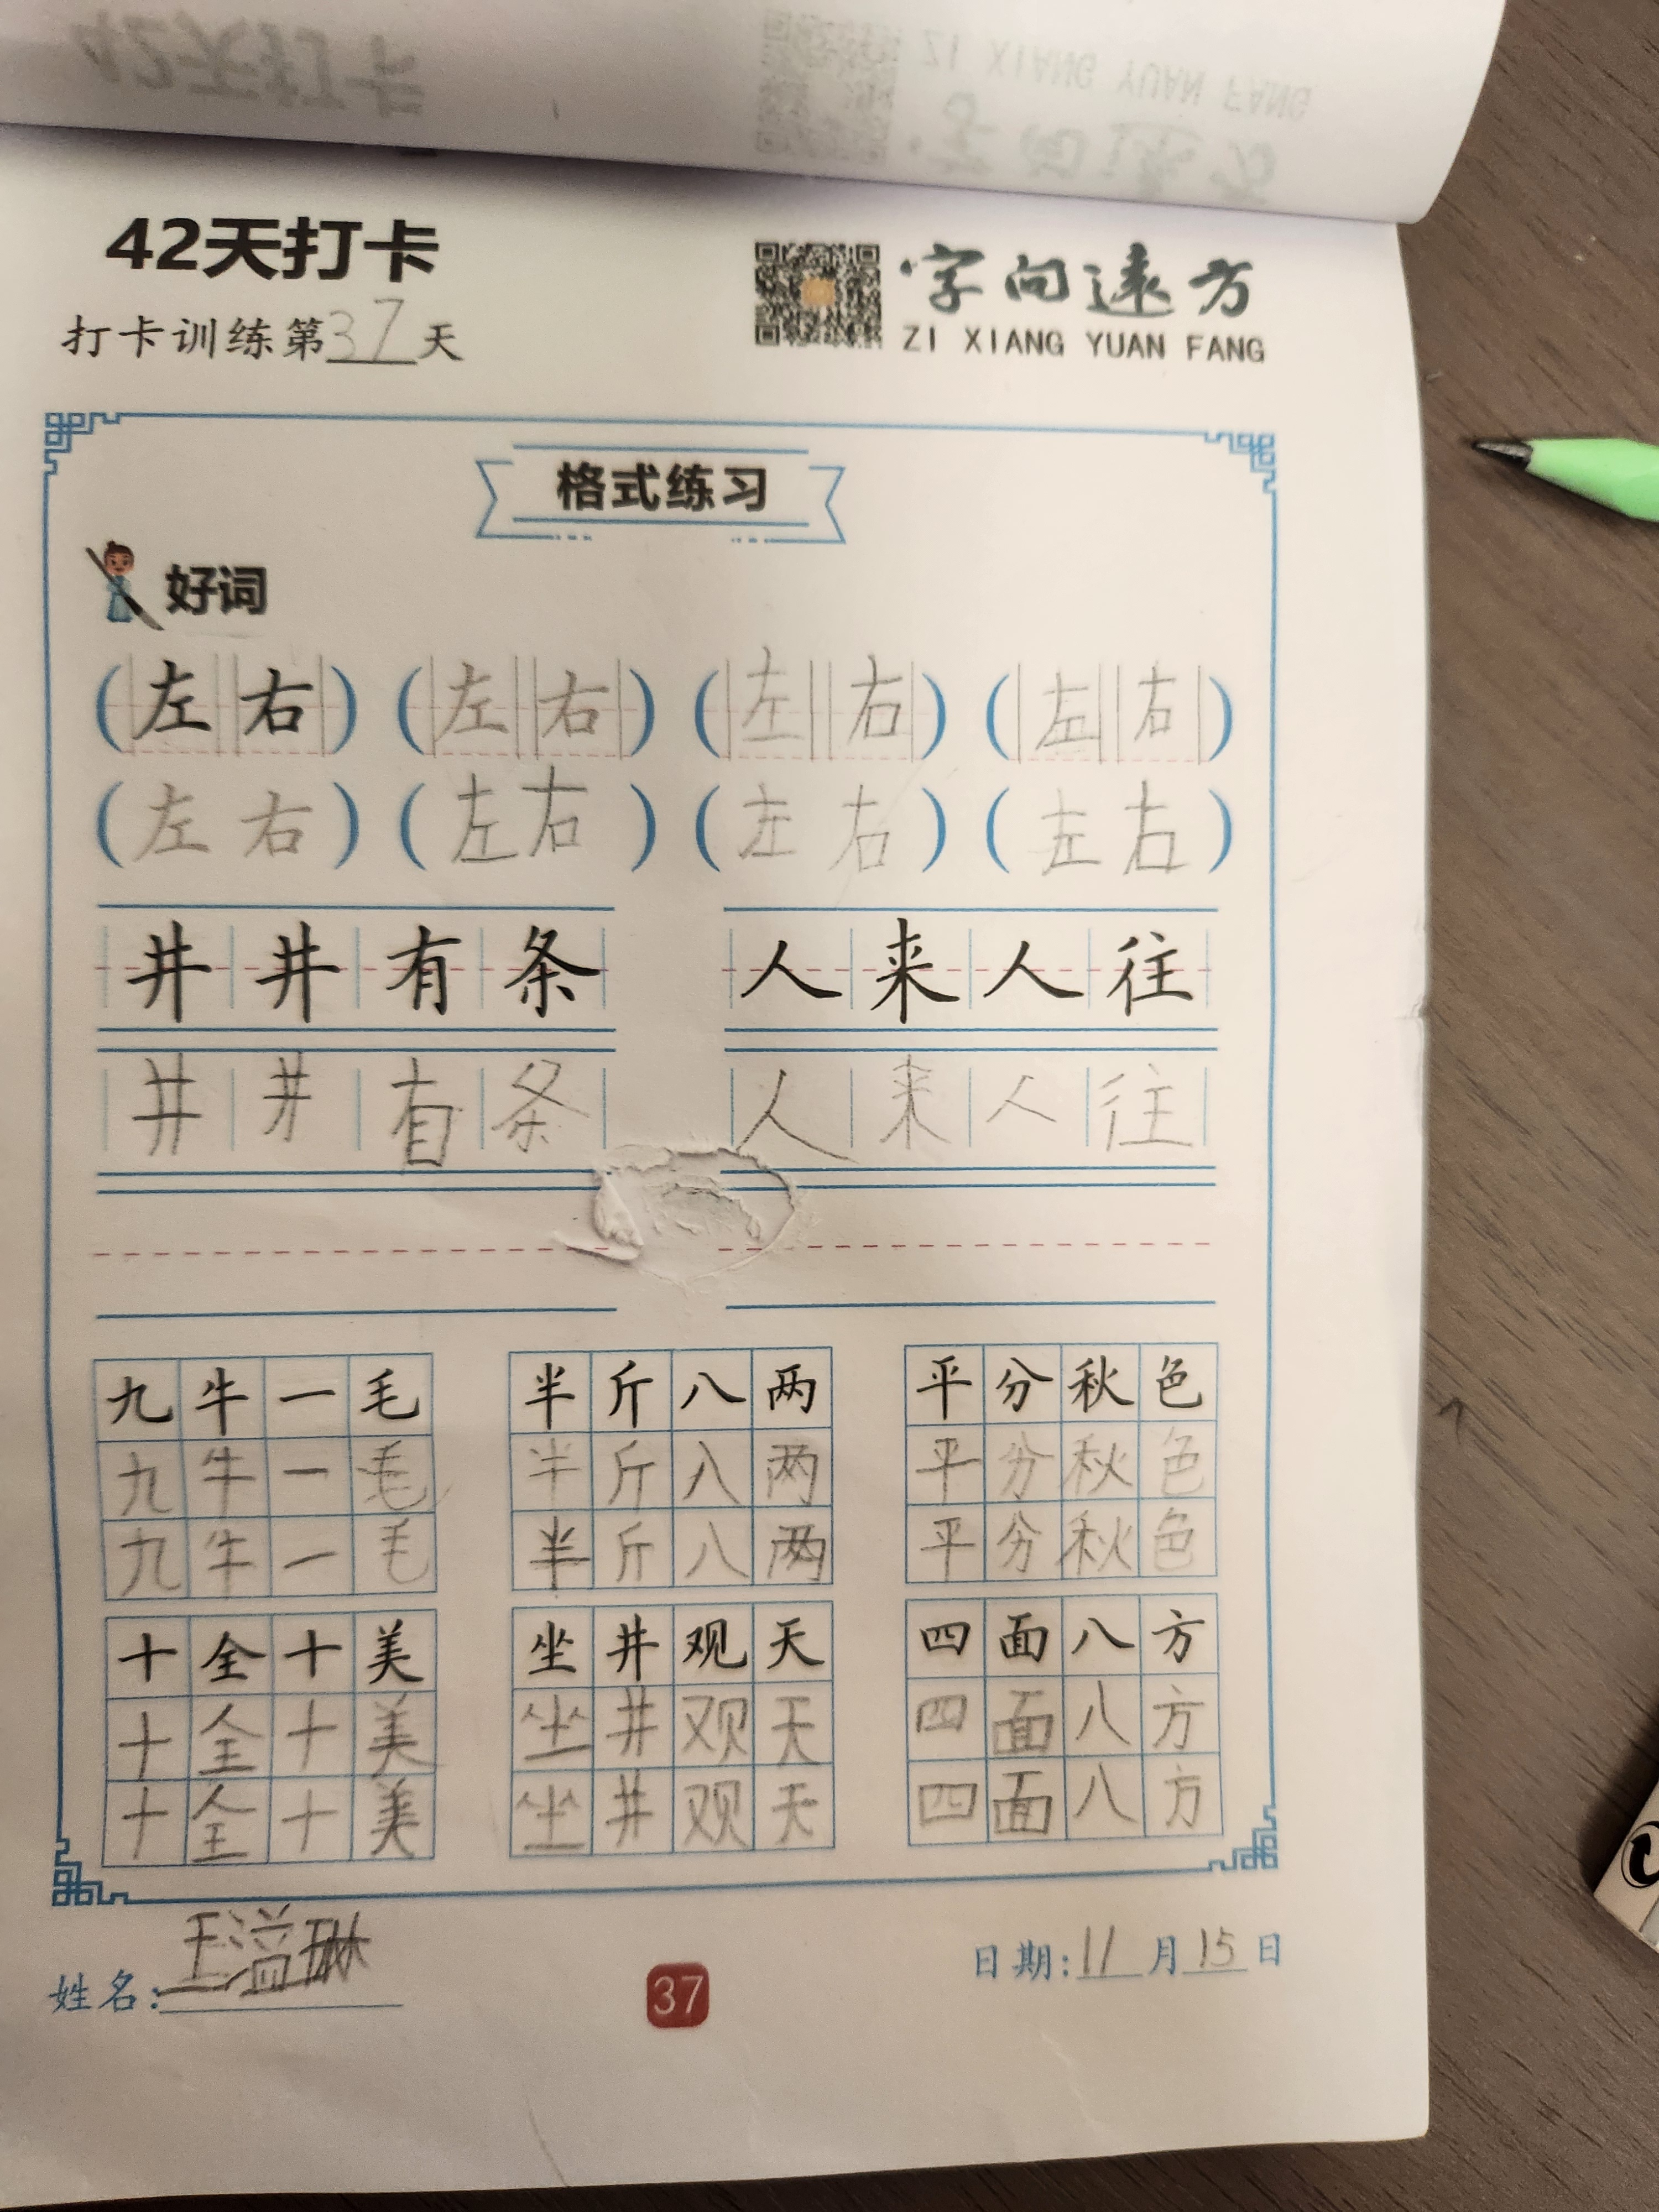 42天打卡
字向远方
ZI XIANG YUAN FANG
打卡训练第37天
格式练习
好词
(左右) (左右) (左右) (左右)
(左右) (左右) (左右) (左右)
井井有条 人来人往
井井有条 人来人往
九牛一毛 半斤八两 平分秋色
九牛一毛 半斤八两 平分秋色
九牛一毛 半斤八两 平分秋色
十全十美 坐井观天 四面八方
十全十美 坐井观天 四面八方
十全十美 坐井观天 四面八方
姓名:王溢琳
37
日期:11月15日